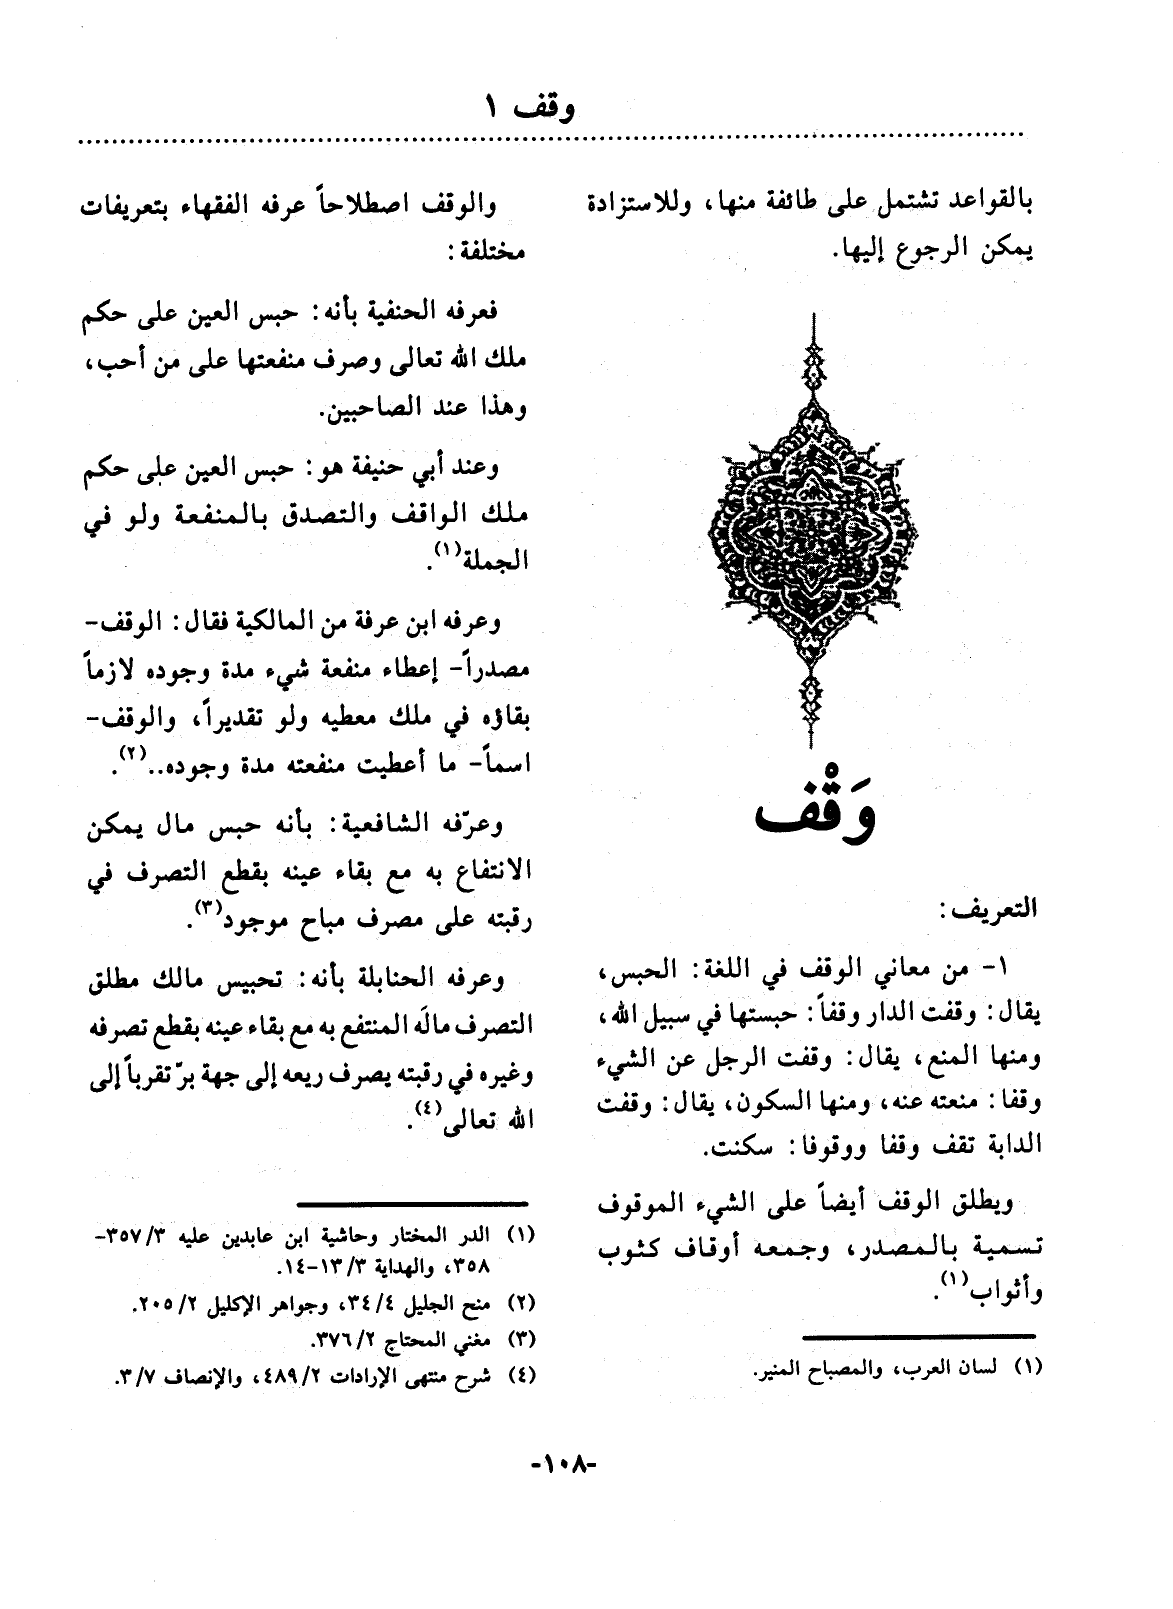 وقف ١
بالقواعد تشتمل على طائفة منها، وللاستزادة
يمكن الرجوع إليها.
وَقْف
التعريف:
١- من معاني الوقف في اللغة: الحبس،
يقال: وقفت الدار وقفاً: حبستها في سبيل الله،
ومنها المنع، يقال: وقفت الرجل عن الشيء
وقفا: منعته عنه، ومنها السكون، يقال: وقفت
الدابة تقف وقفا ووقوفا: سكنت.
ويطلق الوقف أيضاً على الشيء الموقوف
تسمية بالمصدر، وجمعه أوقاف كثوب
وأثواب(١).
(١) لسان العرب، والمصباح المنير.
والوقف اصطلاحاً عرفه الفقهاء بتعريفات
مختلفة:
فعرفه الحنفية بأنه: حبس العين على حكم
ملك الله تعالى وصرف منفعتها على من أحب،
وهذا عند الصاحبين.
وعند أبي حنيفة هو: حبس العين على حكم
ملك الواقف والتصدق بالمنفعة ولو في
الجملة(١).
وعرفه ابن عرفة من المالكية فقال: الوقف-
مصدراً- إعطاء منفعة شيء مدة وجوده لازماً
بقاؤه في ملك معطيه ولو تقديراً، والوقف-
اسماً- ما أعطيت منفعته مدة وجوده..(٢).
وعرّفه الشافعية: بأنه حبس مال يمكن
الانتفاع به مع بقاء عينه بقطع التصرف في
رقبته على مصرف مباح موجود(٣).
وعرفه الحنابلة بأنه: تحبيس مالك مطلق
التصرف مالَه المنتفع به مع بقاء عينه بقطع تصرفه
وغيره في رقبته يصرف ريعه إلى جهة برّ تقرباً إلى
الله تعالى(٤).
(١) الدر المختار وحاشية ابن عابدين عليه ٣/ ٣٥٧-
٣٥٨، والهداية ٣/ ١٣-١٤.
(٢) منح الجليل ٤/ ٣٤، وجواهر الإكليل ٢/ ٢٠٥.
(٣) مغني المحتاج ٢/ ٣٧٦.
(٤) شرح منتهى الإرادات ٢/ ٤٨٩، والإنصاف ٧/ ٣.
-١٠٨-